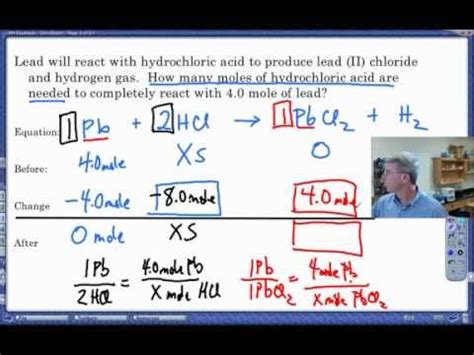 Lead will react with hydrochloric acid to produce lead (II) chloride
and hydrogen gas. How many moles of hydrochloric acid are
needed to completely react with 4.0 mole of lead?
Equation: 1 Pb + 2 HCl → 1 PbCl₂ + H₂
Before: 4.0 mole XS 0
Change -4.0 mole -8.0 mole 4.0 mole
After 0 mole XS
1 Pb / 2 HCl = 4.0 mole Pb / X mole HCl 1 Pb / 1 PbCl₂ = 4 mole Pb / X mole PbCl₂